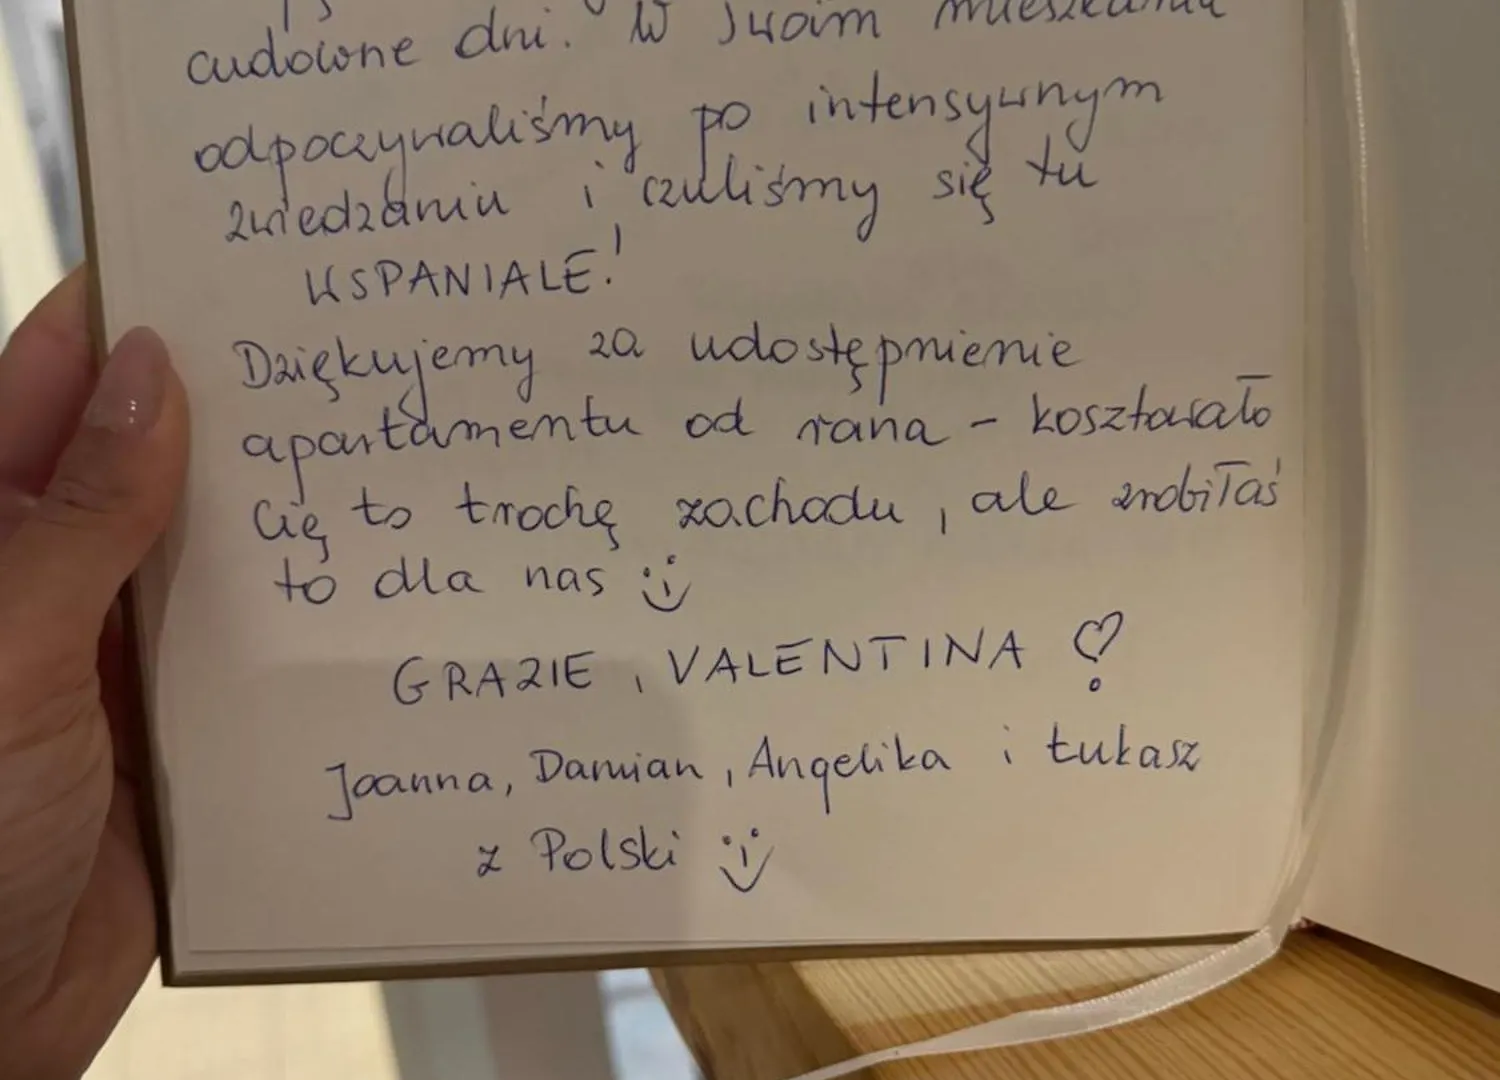 cudowne dni. W Twoim mieszkaniu
odpoczywaliśmy po intensywnym
zwiedzaniu i czuliśmy się tu
WSPANIALE!
Dziękujemy za udostępnienie
apartamentu od rana - kosztowało
Cię to trochę zachodu, ale zrobiłaś
to dla nas :)
GRAZIE, VALENTINA ♡
Joanna, Damian, Angelika i Łukasz
z Polski :)